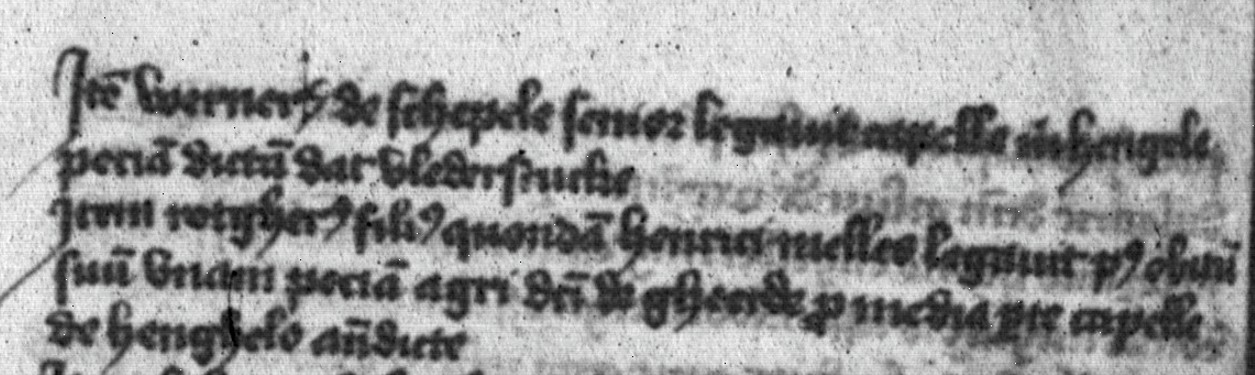 Itē wernerꝰ de schepele senior legauit capelle in hengele
peciā dictā dat vlederstucke
Item rotgherꝰ filiꝰ quondā henrici melles legauit pꝰ obitū
suū vnam peciā agri dc̄i de gheerde ꝓ media ꝑte capelle
de henghelo an̄dicte